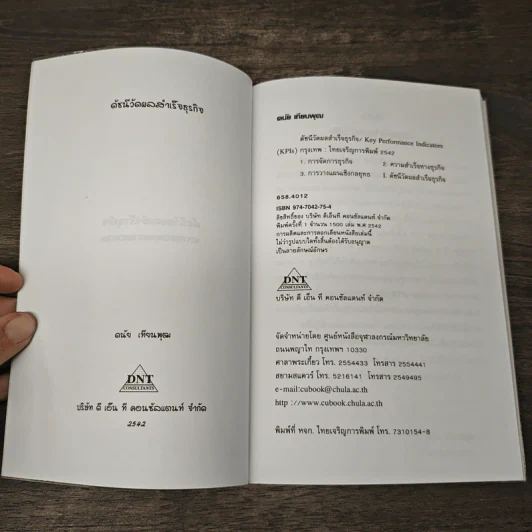 ดัชนีวัดผลสำเร็จธุรกิจ
ดนัย เทียนพุฒ
DNT
CONSULTANTS
บริษัท ดี เอ็น ที คอนซัลแตนท์ จำกัด
2542
ดนัย เทียนพุฒ
ดัชนีวัดผลสำเร็จธุรกิจ/ Key Performance Indicators
(KPIs) กรุงเทพ : ไทยเจริญการพิมพ์ 2542
1. การจัดการธุรกิจ 2. ความสำเร็จทางธุรกิจ
3. การวางแผนเชิงกลยุทธ I. ดัชนีวัดผลสำเร็จธุรกิจ
658.4012
ISBN 974-7042-75-4
ลิขสิทธิ์ของ บริษัท ดีเอ็นที คอนซัลแตนท์ จำกัด
พิมพ์ครั้งที่ 1 จำนวน 1500 เล่ม พ.ศ 2542
การผลิตและการลอกเลียนหนังสือเล่มนี้
ไม่ว่ารูปแบบใดทั้งสิ้นต้องได้รับอนุญาต
เป็นลายลักษณ์อักษร
DNT
CONSULTANTS
บริษัท ดี เอ็น ที คอนซัลแตนท์ จำกัด
จัดจำหน่ายโดย ศูนย์หนังสือจุฬาลงกรณ์มหาวิทยาลัย
ถนนพญาไท กรุงเทพฯ 10330
ศาลาพระเกี้ยว โทร. 2554433 โทรสาร 2554441
สยามสแควร์ โทร. 5216141 โทรสาร 2549495
e-mail:cubook@chula.ac.th
http ://www.cubook.chula.ac.th
พิมพ์ที่ หจก. ไทยเจริญการพิมพ์ โทร. 7310154-8